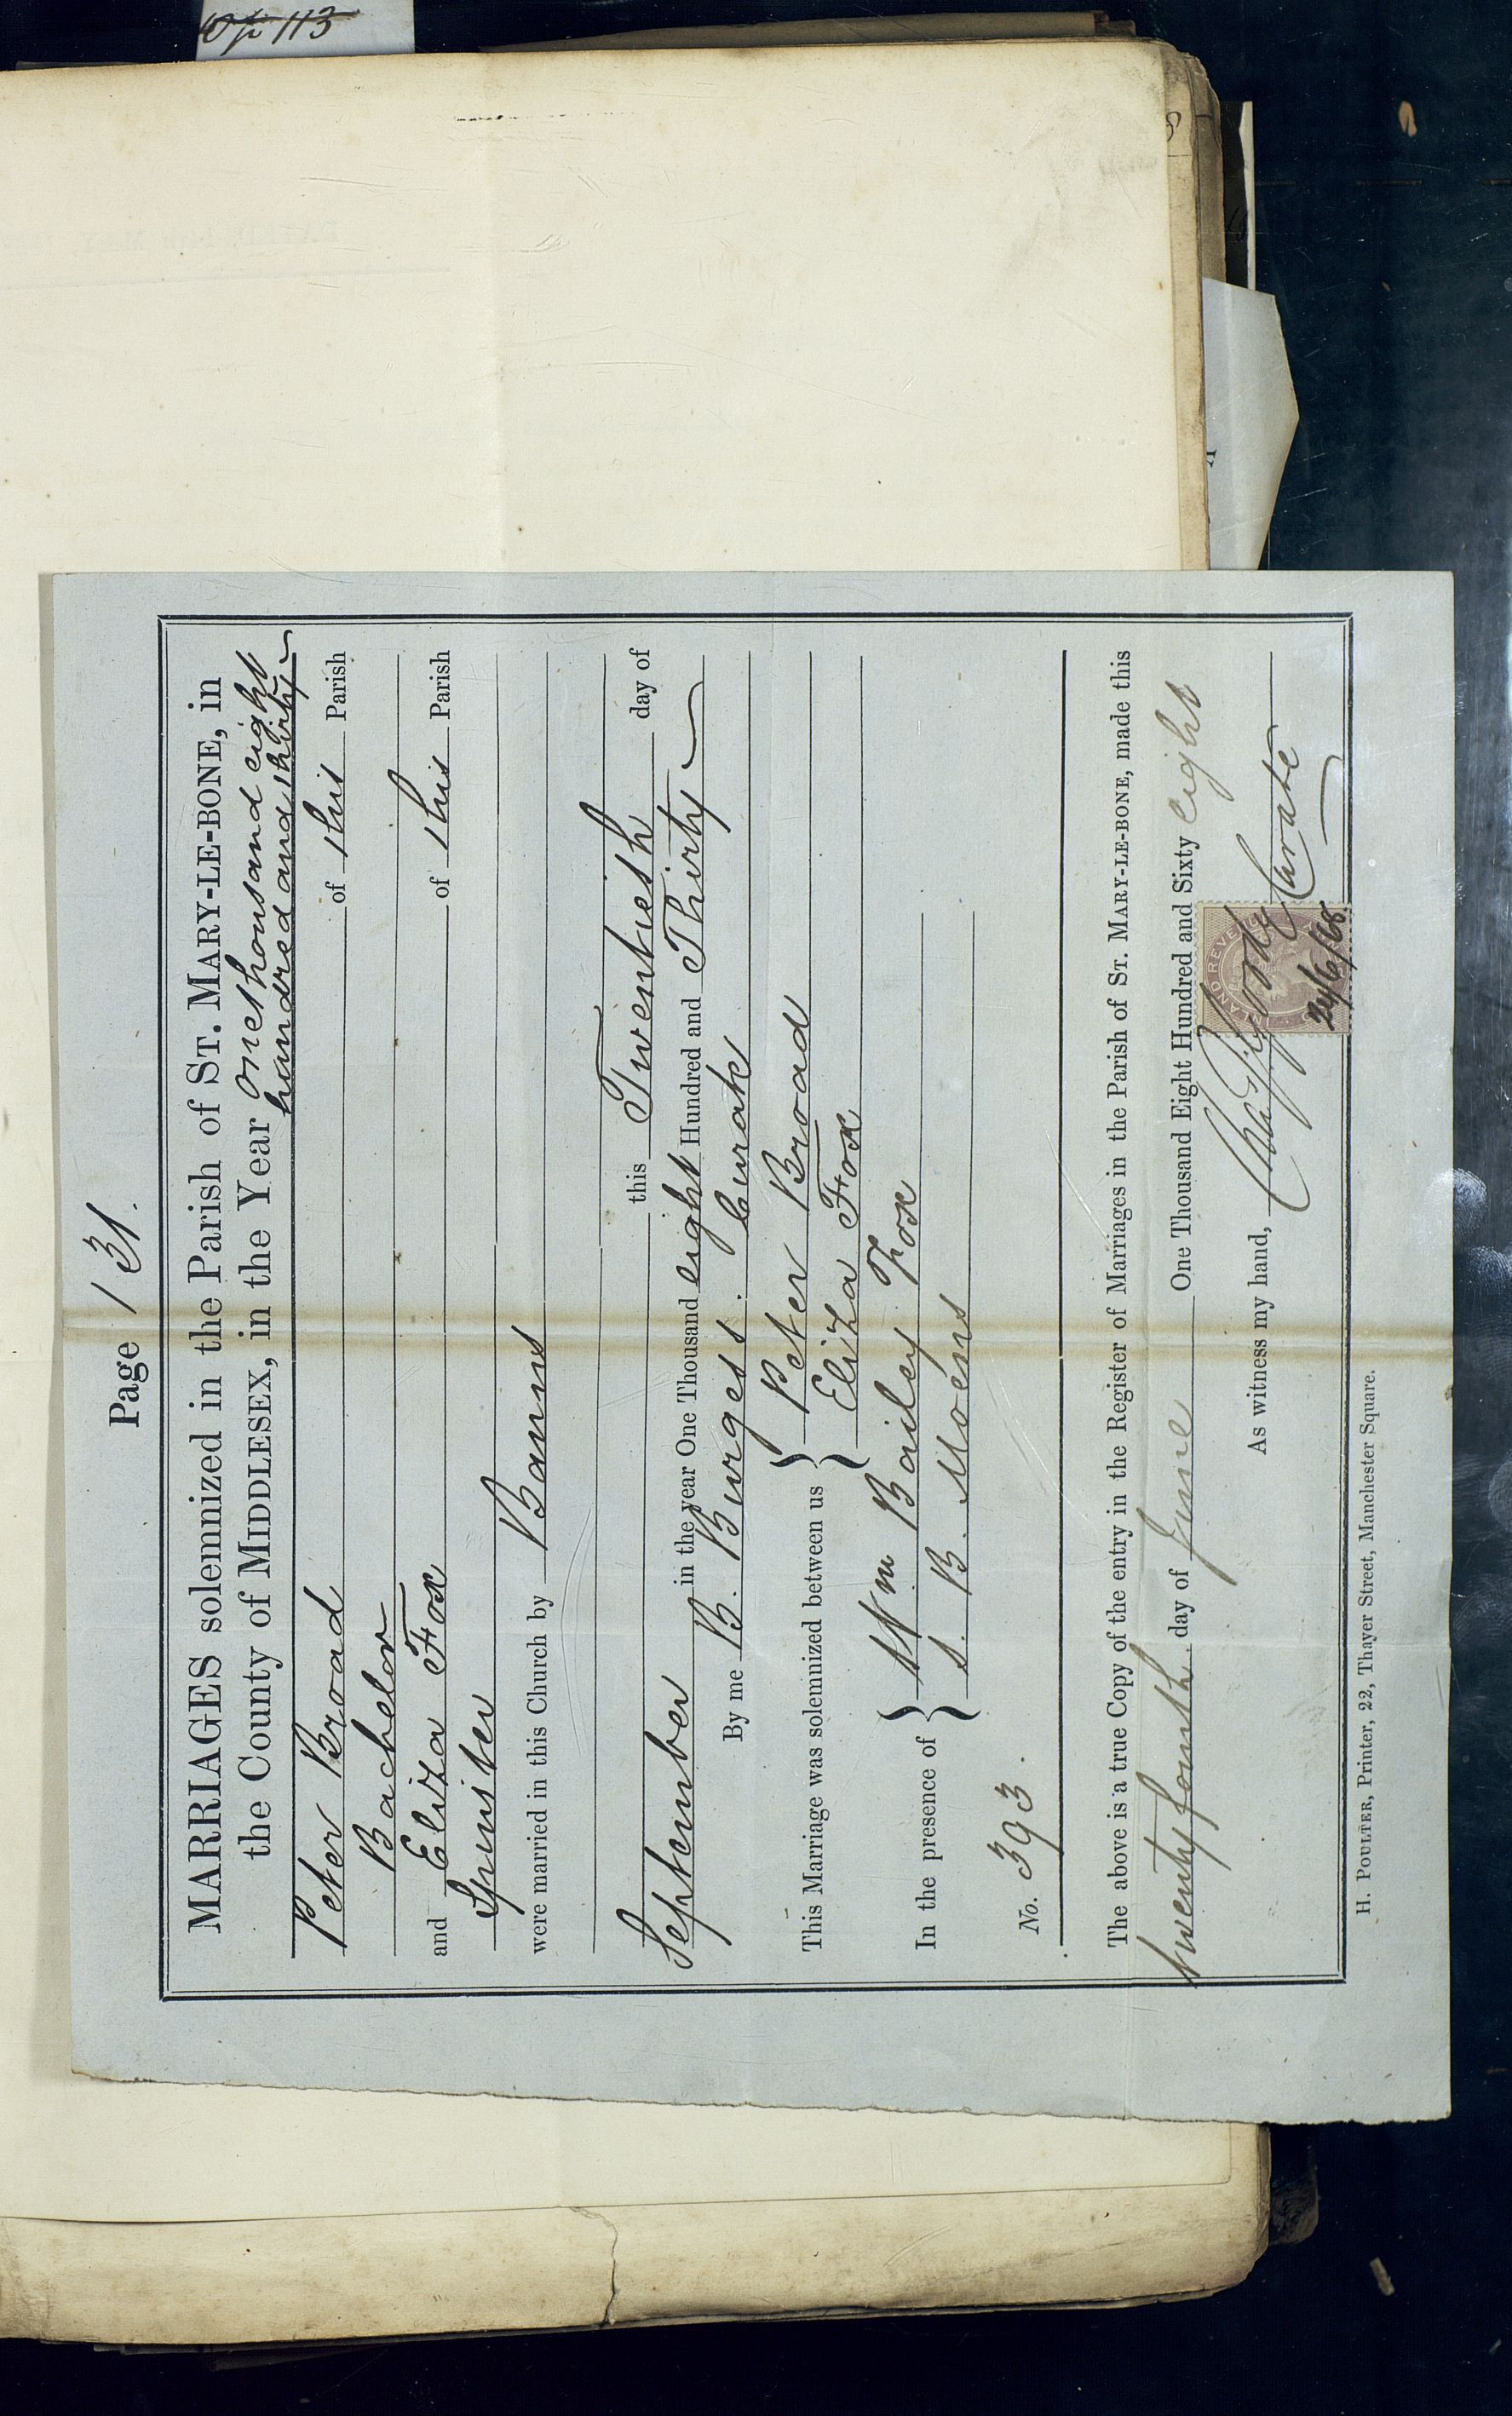 Page 131.
MARRIAGES solemnized in the Parish of ST. MARY-LE-BONE, in
the County of MIDDLESEX, in the Year One thousand eight
hundred and thirty
Peter Broad of this Parish
Bachelor
and Eliza Fox of this Parish
Spinster
were married in this Church by Banns
this Twentieth day of
September in the year One Thousand eight Hundred and Thirty
By me B. Burgess. Curate
This Marriage was solemnized between us Peter Broad
Eliza Fox
In the presence of Wm Bailey Fox
S. B. Moens
No. 393.
The above is a true Copy of the entry in the Register of Marriages in the Parish of ST. MARY-LE-BONE, made this
twenty fourth day of June One Thousand Eight Hundred and Sixty eight
As witness my hand, Curate
INLAND REVENUE
24/6/68.
H. POULTER, Printer, 22, Thayer Street, Manchester Square.
113